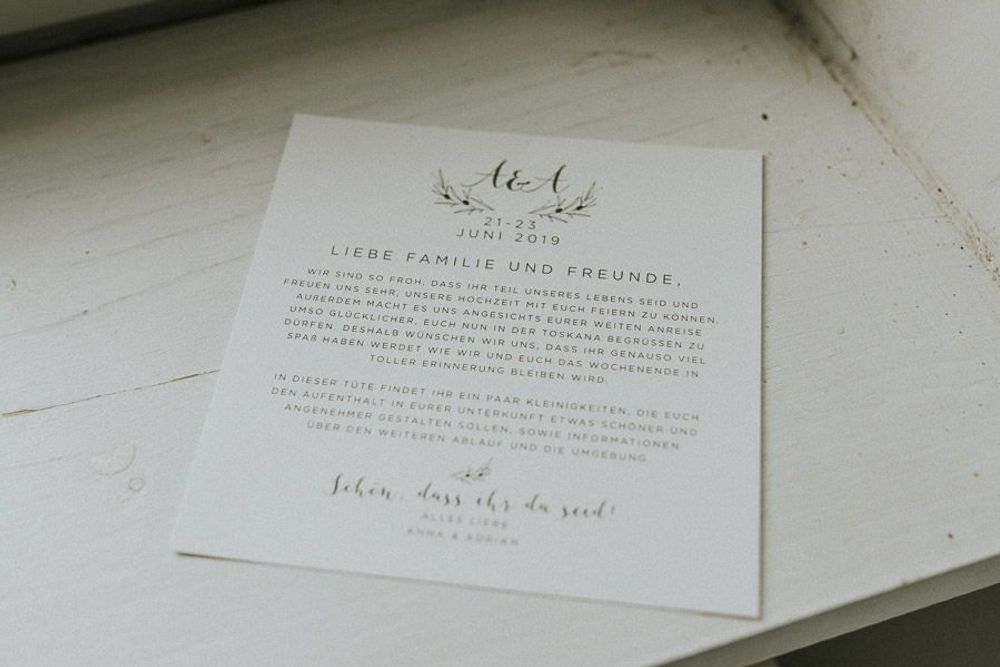 A&A
21-23
JUNI 2019
LIEBE FAMILIE UND FREUNDE,
WIR SIND SO FROH, DASS IHR TEIL UNSERES LEBENS SEID UND
FREUEN UNS SEHR, UNSERE HOCHZEIT MIT EUCH FEIERN ZU KÖNNEN.
AUßERDEM MACHT ES UNS ANGESICHTS EURER WEITEN ANREISE
UMSO GLÜCKLICHER, EUCH NUN IN DER TOSKANA BEGRÜSSEN ZU
DÜRFEN. DESHALB WÜNSCHEN WIR UNS, DASS IHR GENAUSO VIEL
SPAß HABEN WERDET WIE WIR UND EUCH DAS WOCHENENDE IN
TOLLER ERINNERUNG BLEIBEN WIRD.
IN DIESER TÜTE FINDET IHR EIN PAAR KLEINIGKEITEN, DIE EUCH
DEN AUFENTHALT IN EURER UNTERKUNFT ETWAS SCHÖNER UND
ANGENEHMER GESTALTEN SOLLEN, SOWIE INFORMATIONEN
ÜBER DEN WEITEREN ABLAUF UND DIE UMGEBUNG.
Schön, dass ihr da seid!
ALLES LIEBE
ANNA & ADRIAN